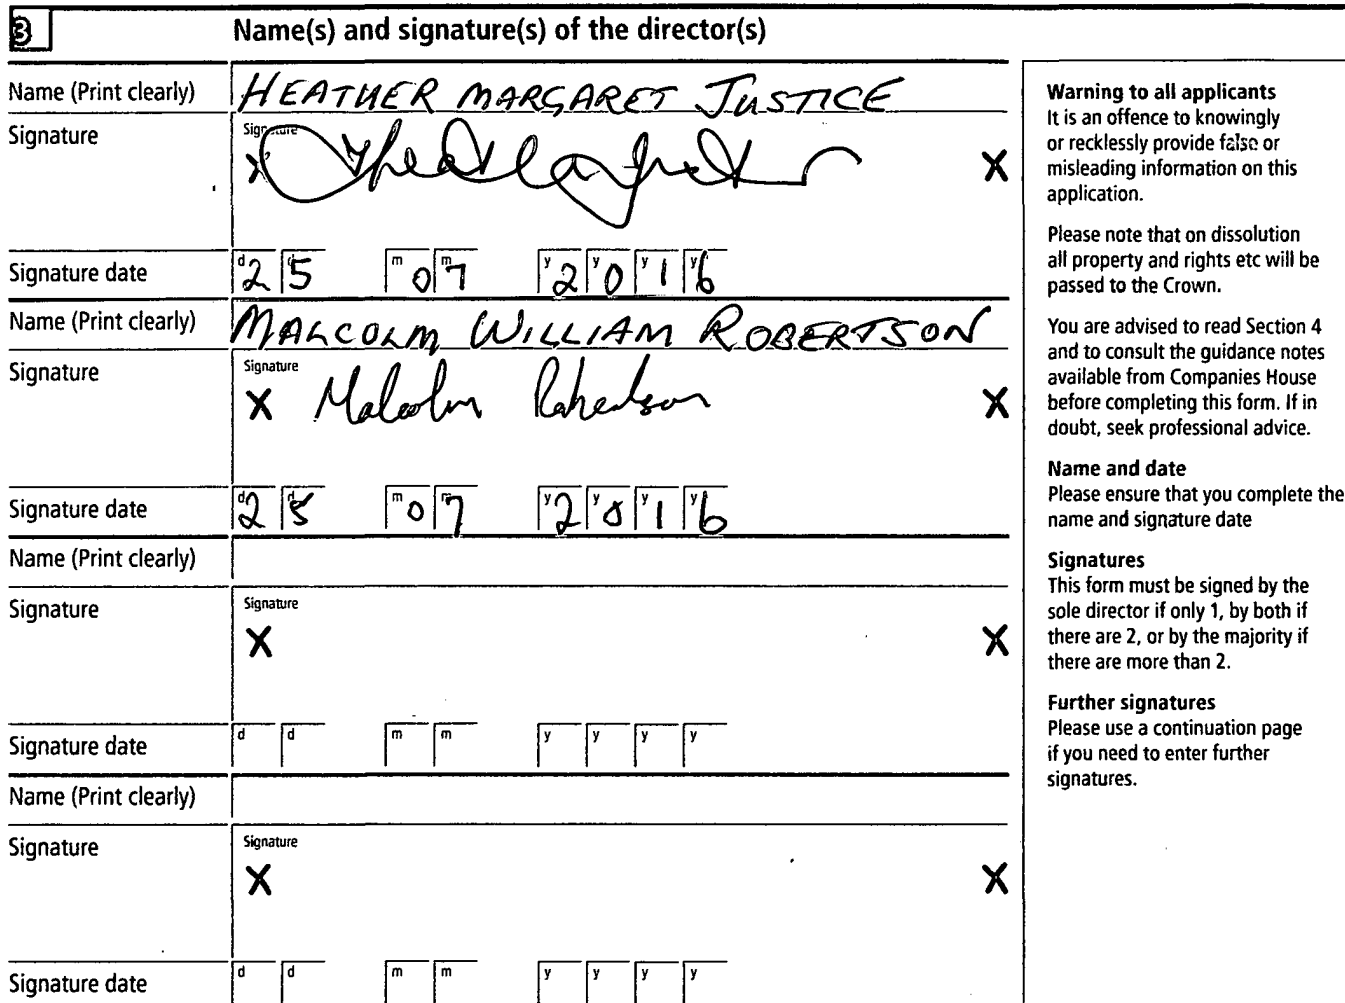 3 Name(s) and signature(s) of the director(s)
Name (Print clearly) HEATHER MARGARET JUSTICE
Signature Signature
X X
Signature date d2 d5 m0 m7 y2 y0 y1 y6
Name (Print clearly) MALCOLM WILLIAM ROBERTSON
Signature Signature
X Malcolm Robertson X
Signature date d2 d5 m0 m7 y2 y0 y1 y6
Name (Print clearly)
Signature Signature
X X
Signature date d d m m y y y y
Name (Print clearly)
Signature Signature
X X
Signature date d d m m y y y y
Warning to all applicants
It is an offence to knowingly
or recklessly provide false or
misleading information on this
application.
Please note that on dissolution
all property and rights etc will be
passed to the Crown.
You are advised to read Section 4
and to consult the guidance notes
available from Companies House
before completing this form. If in
doubt, seek professional advice.
Name and date
Please ensure that you complete the
name and signature date
Signatures
This form must be signed by the
sole director if only 1, by both if
there are 2, or by the majority if
there are more than 2.
Further signatures
Please use a continuation page
if you need to enter further
signatures.